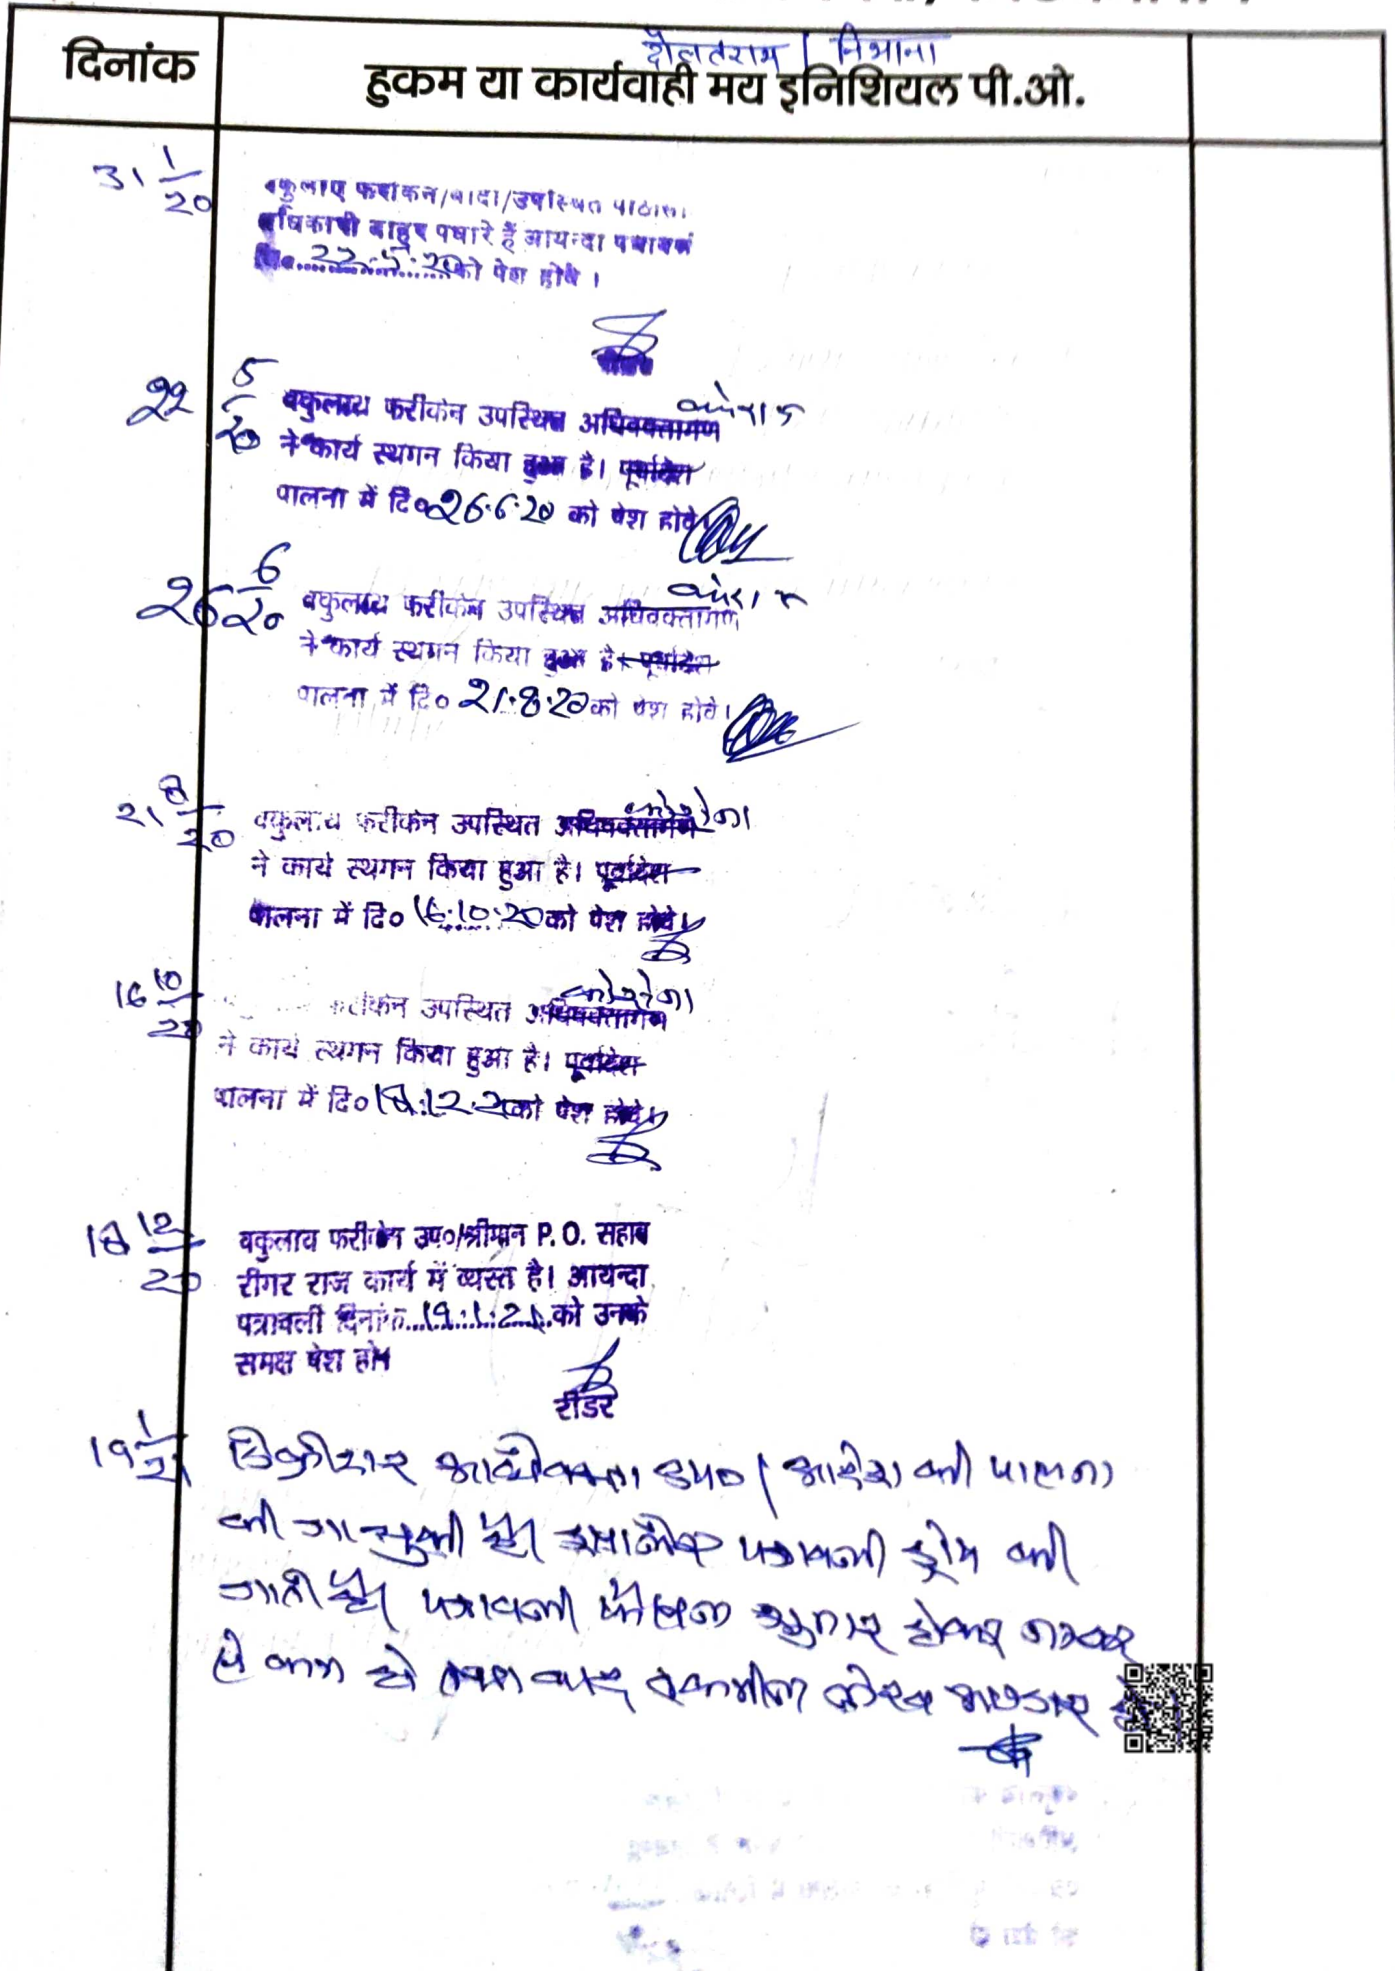 दौलतराम / निभाना
दिनांक
हुकम या कार्यवाही मय इनिशियल पी.ओ.
31 1/20
/वादी/उपस्थित
पधारे हैं आयन्दा
22.5.20 को पेश होवे ।
22 5/20
वकुलाय फरीकेन उपस्थित अधिवक्तागण
ने कार्य स्थगन किया हुआ है। पूर्वादेश
पालना में दि० 26.6.20 को पेश होवे।
26 6/20
वकुलाय फरीकेन उपस्थित अधिवक्तागण
ने कार्य स्थगन किया हुआ है। पूर्वादेश
पालना में दि० 21.8.20 को पेश होवे।
21 8/20
कोरोना
वकुलाय फरीकेन उपस्थित अधिवक्तागण
ने कार्य स्थगन किया हुआ है। पूर्वादेश
पालना में दि० 16.10.20 को पेश होवे।
16 10/20
कोरोना
फरीकेन उपस्थित अधिवक्तागण
ने कार्य स्थगन किया हुआ है। पूर्वादेश
पालना में दि० 18.12.20 को पेश होवे।
18 12/20
वकुलाय फरीकेन उप०/श्रीमान P.O. सहाब
दीगर राज कार्य में व्यस्त है। आयन्दा
पत्रावली दिनांक 19.1.21 को उनके
समक्ष पेश हो
रीडर
19 1/21
डिक्रीदार अधिवक्ता उप० / आदेश की पालना
की जा चुकी है। इसलिए पत्रावली ड्रॉप की
जाती है। पत्रावली फैसल शुमार होकर नम्बर
से कम हो बाद तकमील दफ्तर हो।